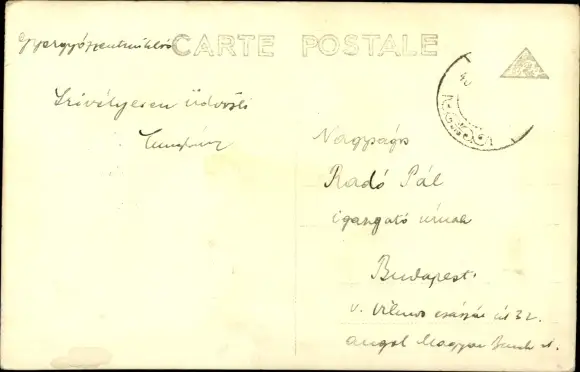 CARTE POSTALE
Gyergyószentmiklós
Szivélyesen Üdvözli
Nagysás
Radó Pál
igazgató úrnak
Budapest.
V. Vilmos császár út 32.
Angol Magyar Bank